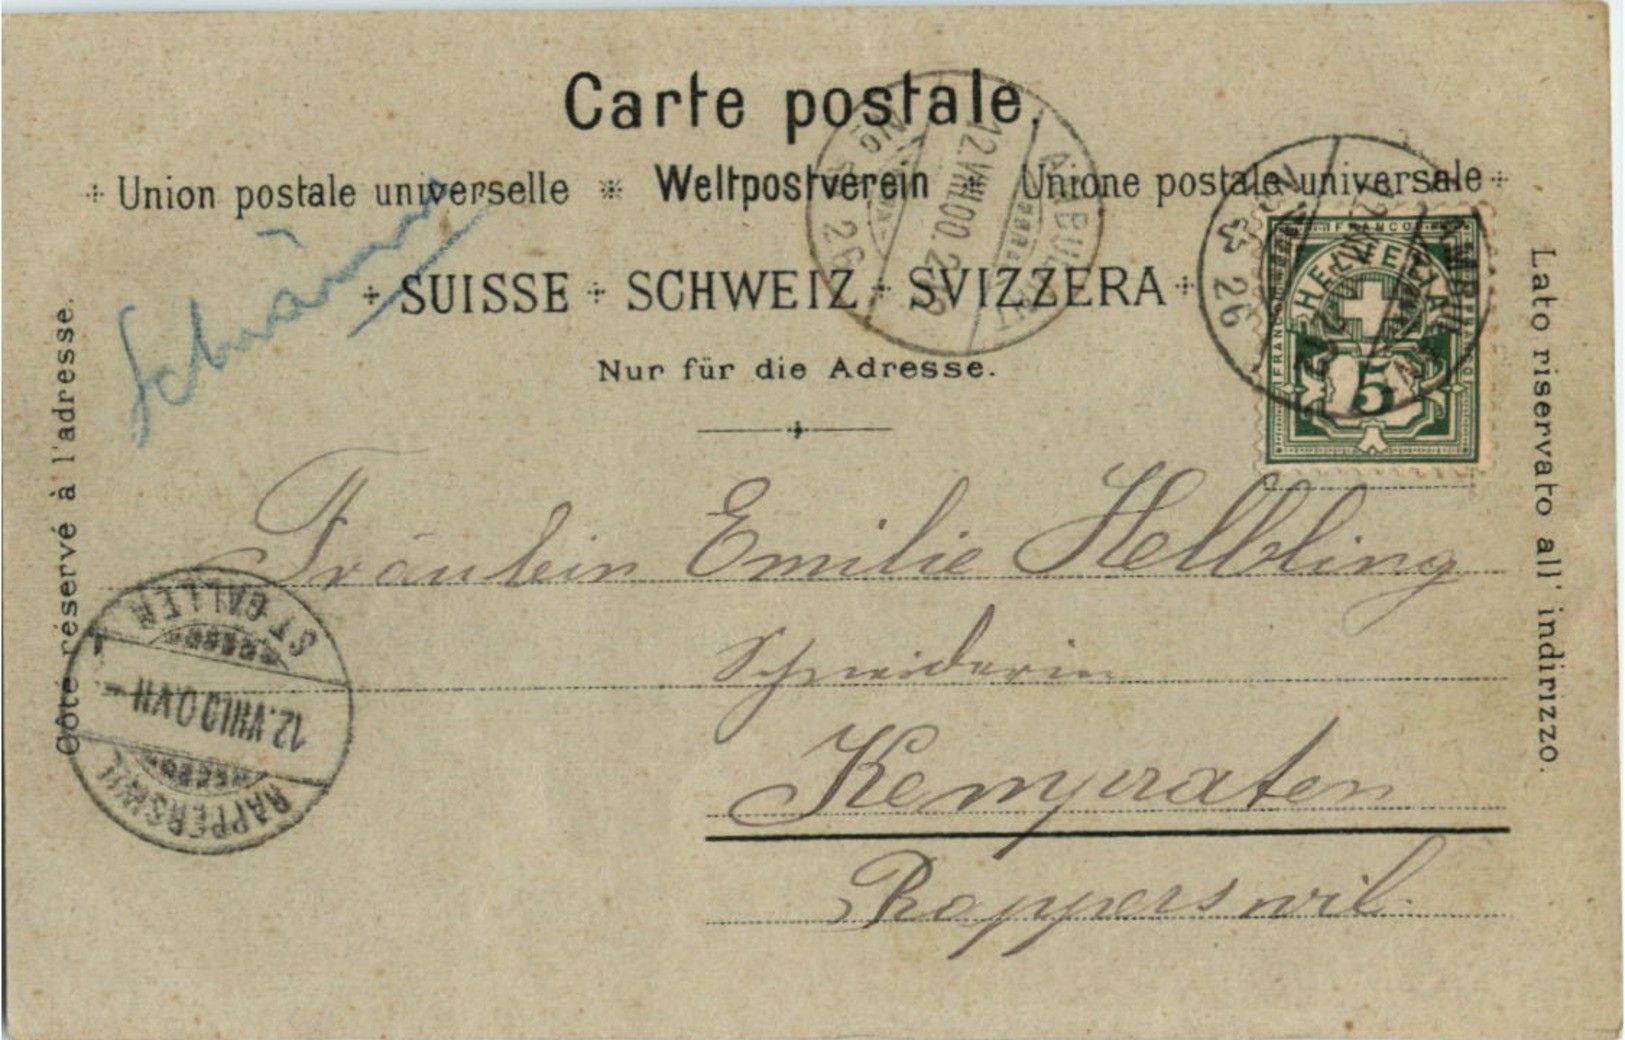 Carte postale.
Union postale universelle ※ Weltpostverein ※ Unione postale universale
SUISSE SCHWEIZ SVIZZERA
Nur für die Adresse.
Côté réservé à l'adresse.
Lato riservato all' indirizzo.
12.VIII.00.
26
26
FRANCO
FRANCO
HELVETIA
5
Fräulein Emilie Helbling
Schneiderin
Kempraten
Rapperswil.
ST GALLEN
12.VIII.00.VII
RAPPERSWIL